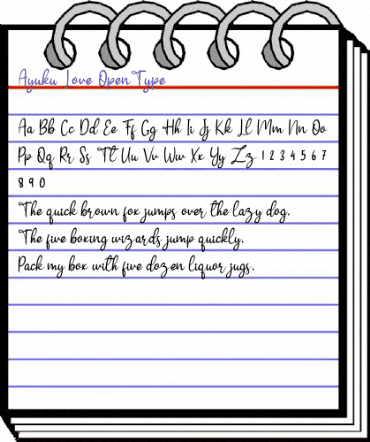 Ayuku Love Open Type
Aa Bb Cc Dd Ee Ff Gg Hh Ii Jj Kk Ll Mm Nn Oo
Pp Qq Rr Ss Tt Uu Vv Ww Xx Yy Zz 1 2 3 4 5 6 7
8 9 0
The quick brown fox jumps over the lazy dog.
The five boxing wizards jump quickly.
Pack my box with five dozen liquor jugs.